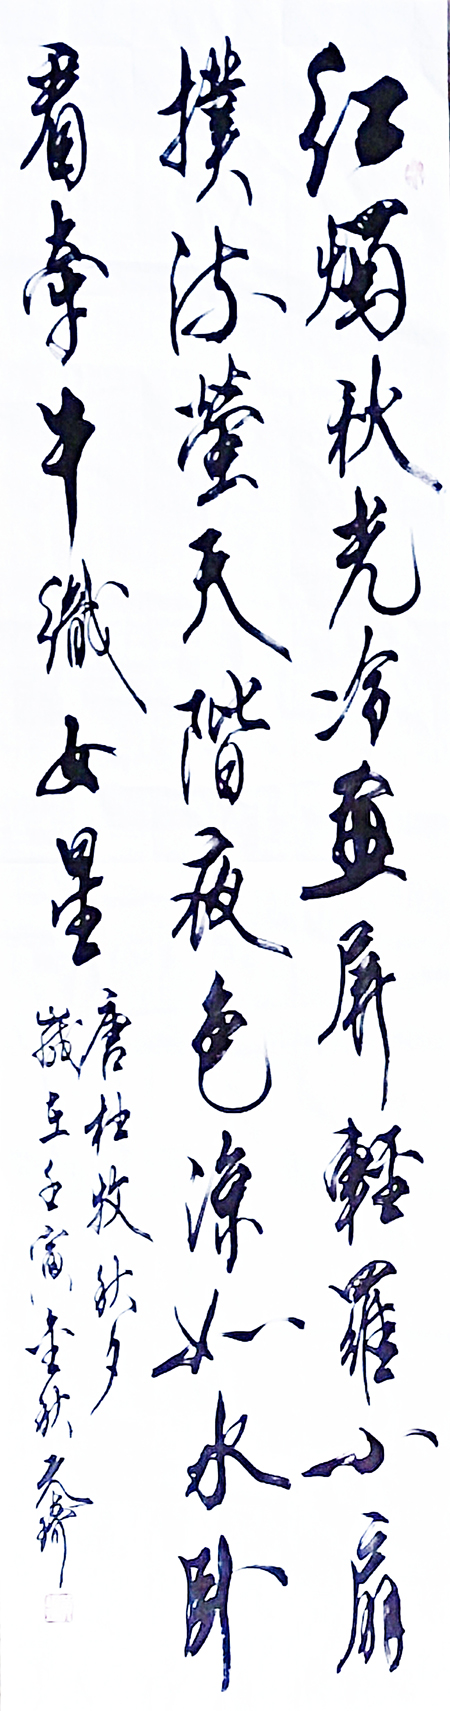 红烛秋光冷画屏轻罗小扇
撲流螢天階夜色涼如水卧
看牽牛織女星
唐杜牧秋夕
歲在壬寅金秋